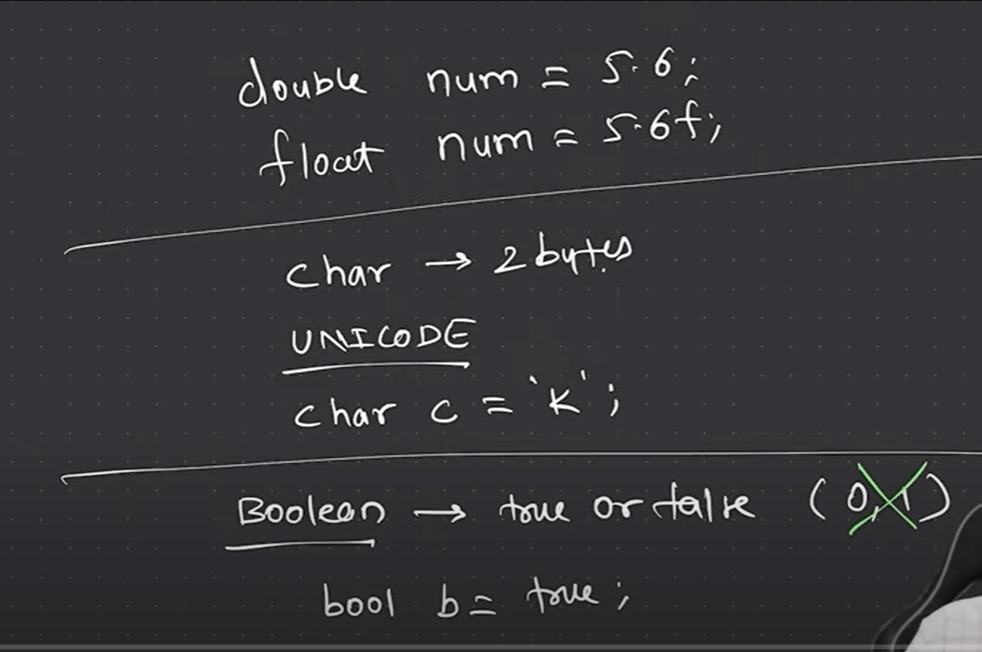 double num = 5.6;
float num = 5.6f;
char → 2 bytes
UNICODE
char c = 'k';
Boolean → true or false (0,1)
bool b = true;